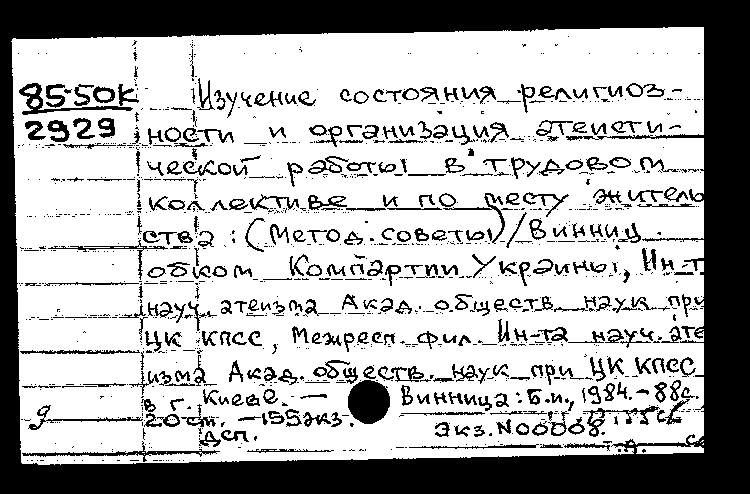 85-50К
2929
Изучение состояния религиоз-
ности и организация атеисти-
ческой работы в трудовом
коллективе и по месту житель
ства: (Метод. советы)/Винниц.
обком Компартии Украины, Ин-т
науч. атеизма Акад. обществ. наук при
ЦК КПСС, Межресп. фил. Ин-та науч. ате
изма Акад. обществ. наук при ЦК КПСС
в г. Киеве. — Винница: Б.и., 1984. - 88с.
20 см. — 155экз.
Дсп. Экз. N00008.
д